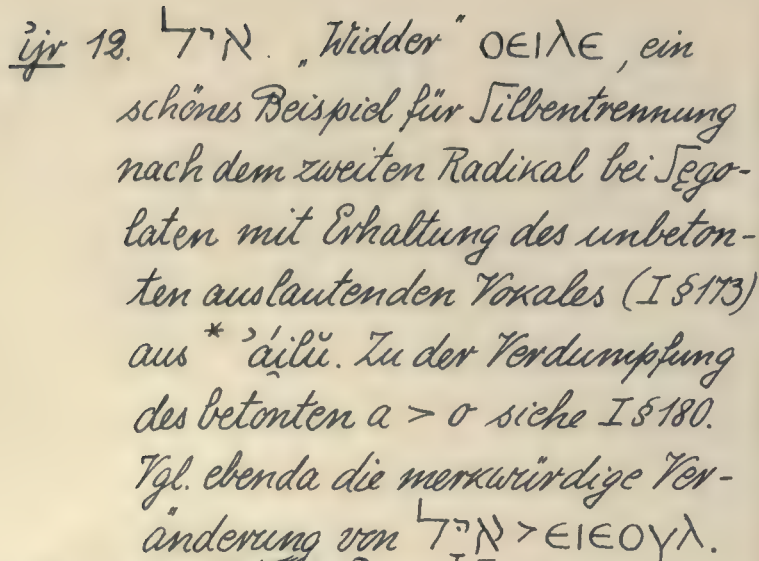 ı͗jr 12. איל. „Widder“ ⲟⲉⲓⲗⲉ, ein
schönes Beispiel für Silbentrennung
nach dem zweiten Radikal bei Sego-
laten mit Erhaltung des unbeton-
ten auslautenden Vokales (I §173)
aus * ʾái̯lŭ. Zu der Verdumpfung
des betonten a > o siehe I §180.
Vgl. ebenda die merkwürdige Ver-
änderung von איל > ⲉⲓⲉⲟⲩⲗ.